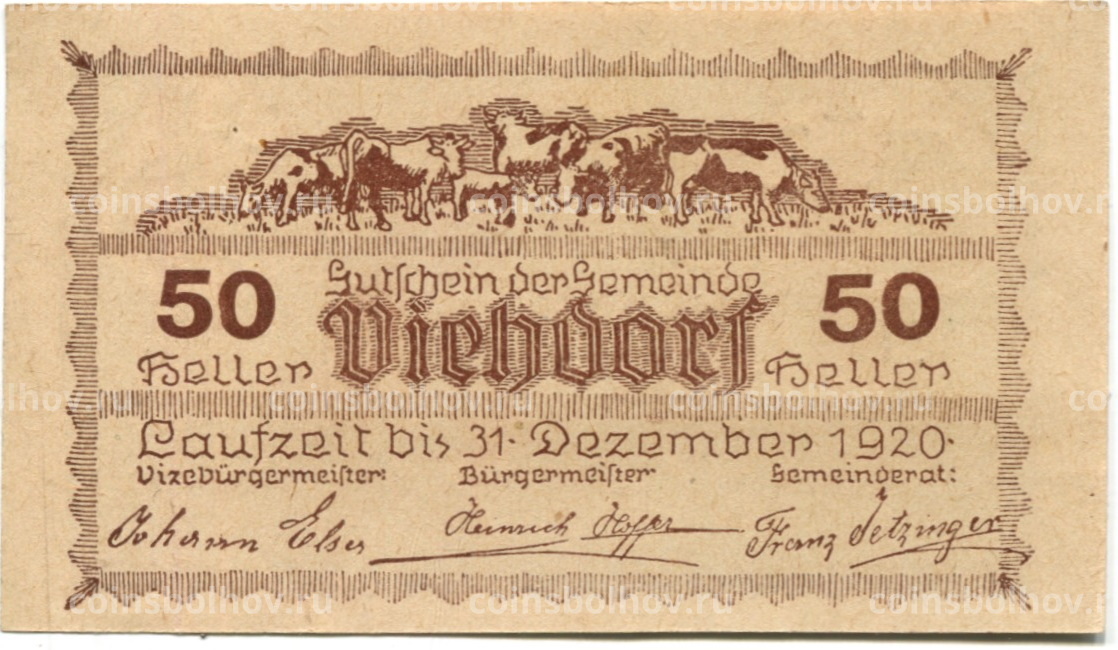 Gutschein der Gemeinde
50 Viehdorf 50
Heller Heller
Laufzeit bis 31. Dezember 1920.
Vizebürgermeister: Bürgermeister Gemeinderat:
Johann Elser Heinrich Franz Jetzinger
coinsbolhov.ru